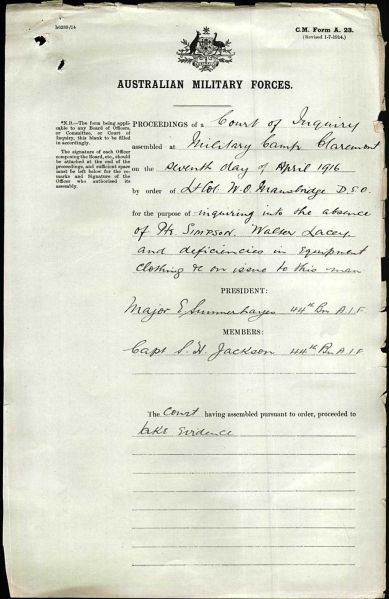 C.M. Form A. 23.
(Revised 1-7-1914.)
AUSTRALIAN MILITARY FORCES.
*N.B.—The form being applic-
able to any Board of Officers,
or Committee, or Court of
Inquiry, this blank to be filled
in accordingly.
The signature of each Officer
composing the Board, etc., should
be attached at the end of the
proceedings, and sufficient space
must be left below for the re-
marks and Signature of the
Officer who authorised its
assembly.
PROCEEDINGS of a Court of Inquiry
assembled at Military Camp Claremont
on the seventh day of April 1916
by order of Lt Col. W.O. Mansbridge D.S.O.
for the purpose of inquiring into the absence
of Pte SIMPSON. Walter Lacey
and deficiencies in Equipment
clothing &c on issue to this man
PRESIDENT:
Major E Summerhayes 44th Bn A.I.F
MEMBERS:
Capt S. H. Jackson 44th Bn A.I.F
The Court having assembled pursuant to order, proceeded to
take Evidence